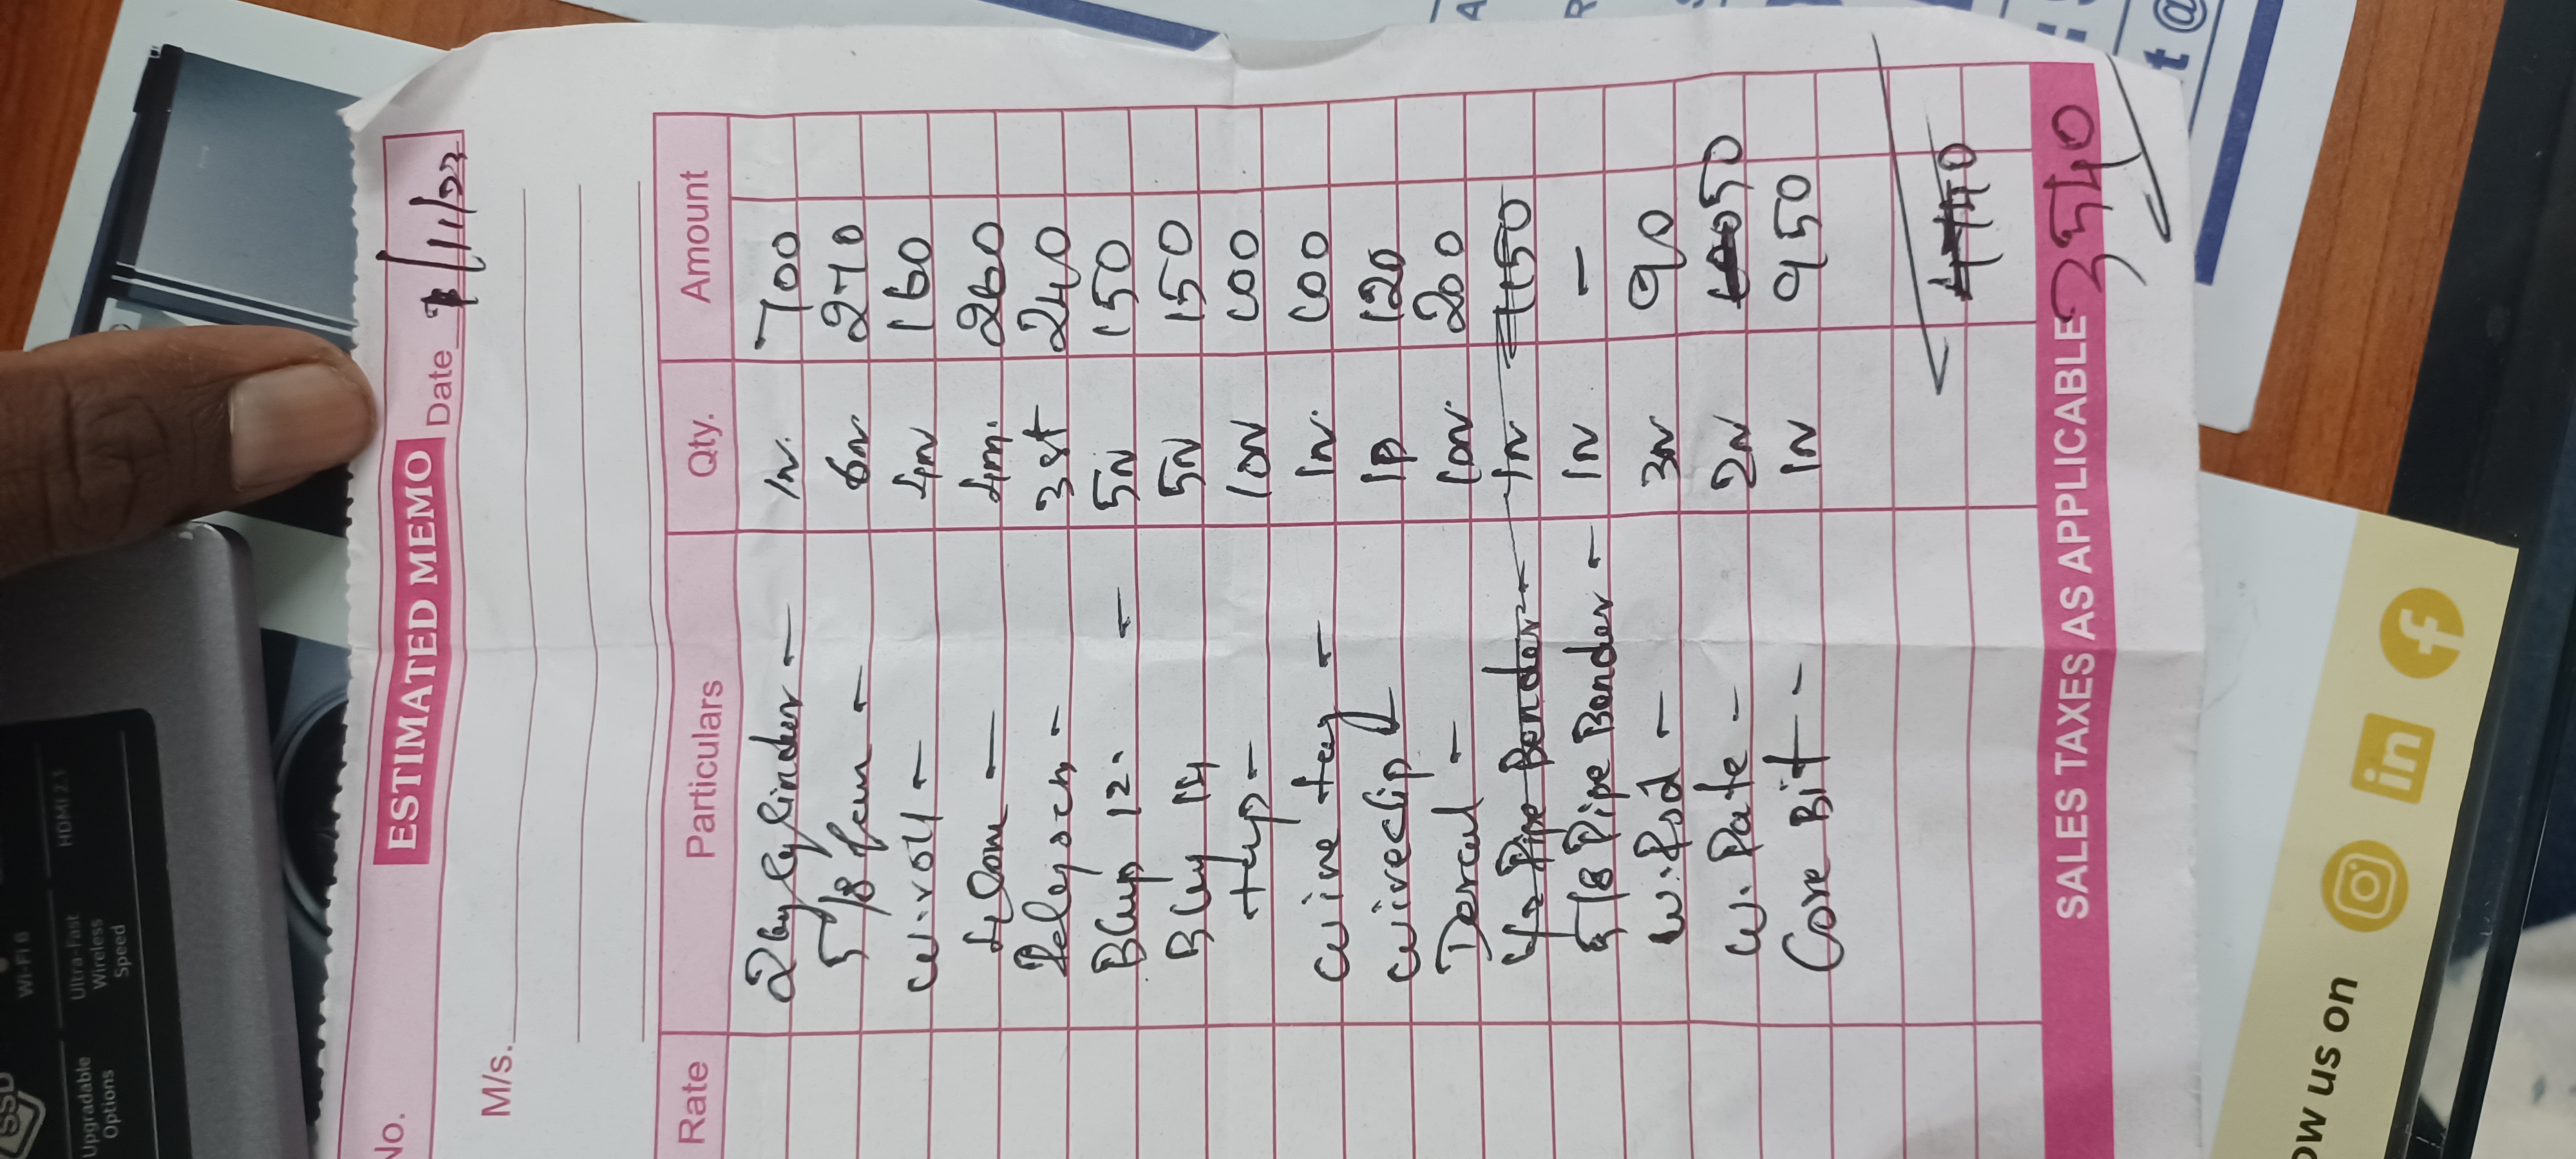 SSD
Wi-Fi 6
HDMI 2.1
Upgradable Options
Ultra-Fast Wireless Speed
No.
ESTIMATED MEMO
Date 1/11/23
M/s.
Rate Particulars Qty. Amount
2 kg Cylinder - 1N. 700
5/8 - 6N 270
w.roll - 4N 160
4 Com - 4m. 260
3 st 240
12 - 5N 150
14 5N 150
tap - 10N 100
wire tag - 1N. 100
wireclip 1P 120
- 10N. 200
1/2 Pipe Bender - 1N 1150
5/8 Pipe Bender - 1N -
W.Rod - 3N 90
W. Pate - 2N 50
Core Bit - 1N 950
4740
SALES TAXES AS APPLICABLE 3540
t @
ow us on
in
f